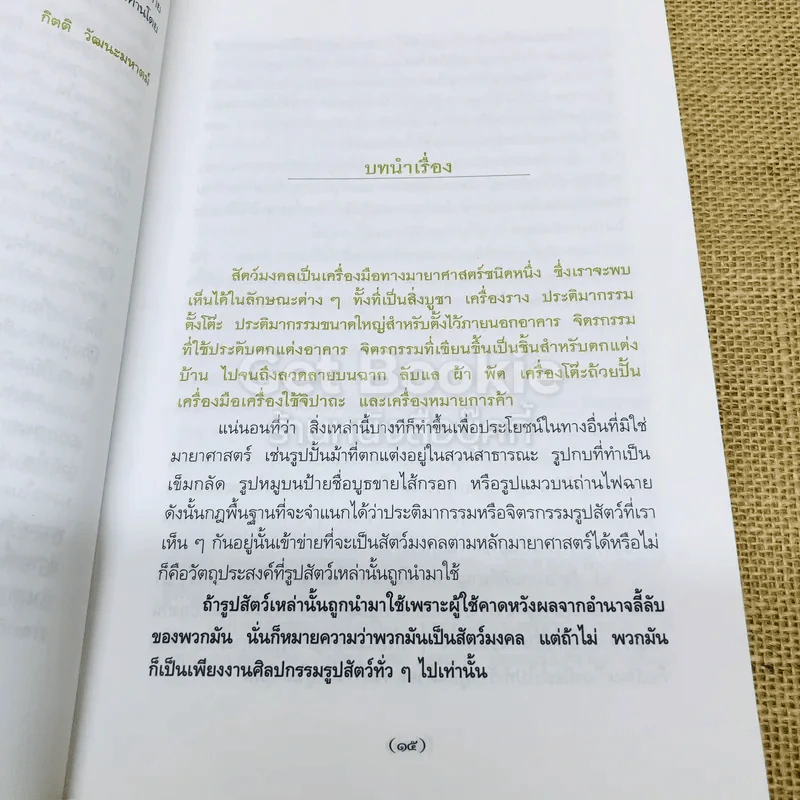 กิตติ วัฒนะมหาตม์
บทนำเรื่อง
สัตว์มงคลเป็นเครื่องมือทางมายาศาสตร์ชนิดหนึ่ง ซึ่งเราจะพบ
เห็นได้ในลักษณะต่าง ๆ ทั้งที่เป็นสิ่งบูชา เครื่องราง ประติมากรรม
ตั้งโต๊ะ ประติมากรรมขนาดใหญ่สำหรับตั้งไว้ภายนอกอาคาร จิตรกรรม
ที่ใช้ประดับตกแต่งอาคาร จิตรกรรมที่เขียนขึ้นเป็นชิ้นสำหรับตกแต่ง
บ้าน ไปจนถึงลวดลายบนฉาก ลับแล ผ้า พัด เครื่องโต๊ะถ้วยปั้น
เครื่องมือเครื่องใช้จิปาถะ และเครื่องหมายการค้า
แน่นอนที่ว่า สิ่งเหล่านี้บางทีก็ทำขึ้นเพื่อประโยชน์ในทางอื่นที่มิใช่
มายาศาสตร์ เช่นรูปปั้นม้าที่ตกแต่งอยู่ในสวนสาธารณะ รูปกบที่ทำเป็น
เข็มกลัด รูปหมูบนป้ายชื่อบูธขายไส้กรอก หรือรูปแมวบนถ่านไฟฉาย
ดังนั้นกฎพื้นฐานที่จะจำแนกได้ว่าประติมากรรมหรือจิตรกรรมรูปสัตว์ที่เรา
เห็น ๆ กันอยู่นั้นเข้าข่ายที่จะเป็นสัตว์มงคลตามหลักมายาศาสตร์ได้หรือไม่
ก็คือวัตถุประสงค์ที่รูปสัตว์เหล่านั้นถูกนำมาใช้
ถ้ารูปสัตว์เหล่านั้นถูกนำมาใช้เพราะผู้ใช้คาดหวังผลจากอำนาจลี้ลับ
ของพวกมัน นั่นก็หมายความว่าพวกมันเป็นสัตว์มงคล แต่ถ้าไม่ พวกมัน
ก็เป็นเพียงงานศิลปกรรมรูปสัตว์ทั่ว ๆ ไปเท่านั้น
(๑๕)
Get Bookie
ร้านหนังสือบุ๊คกี้